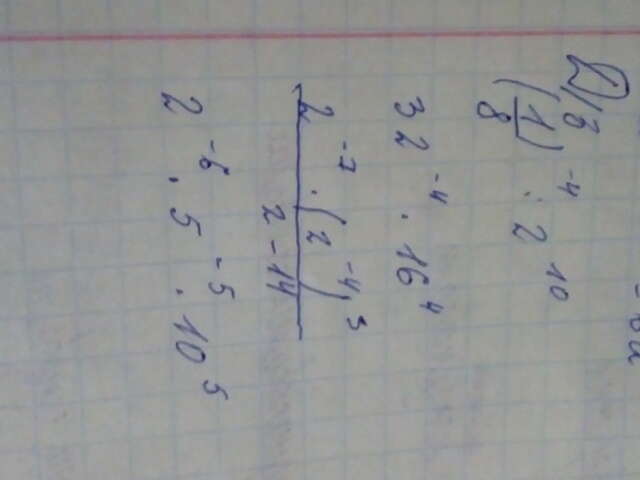 (1/8)⁻⁴ : 2¹⁰
32⁻⁴ · 16⁴
2⁻⁷ · (2⁻⁴)³ / 2⁻¹⁴
2⁻⁶ · 5⁻⁵ · 10⁵